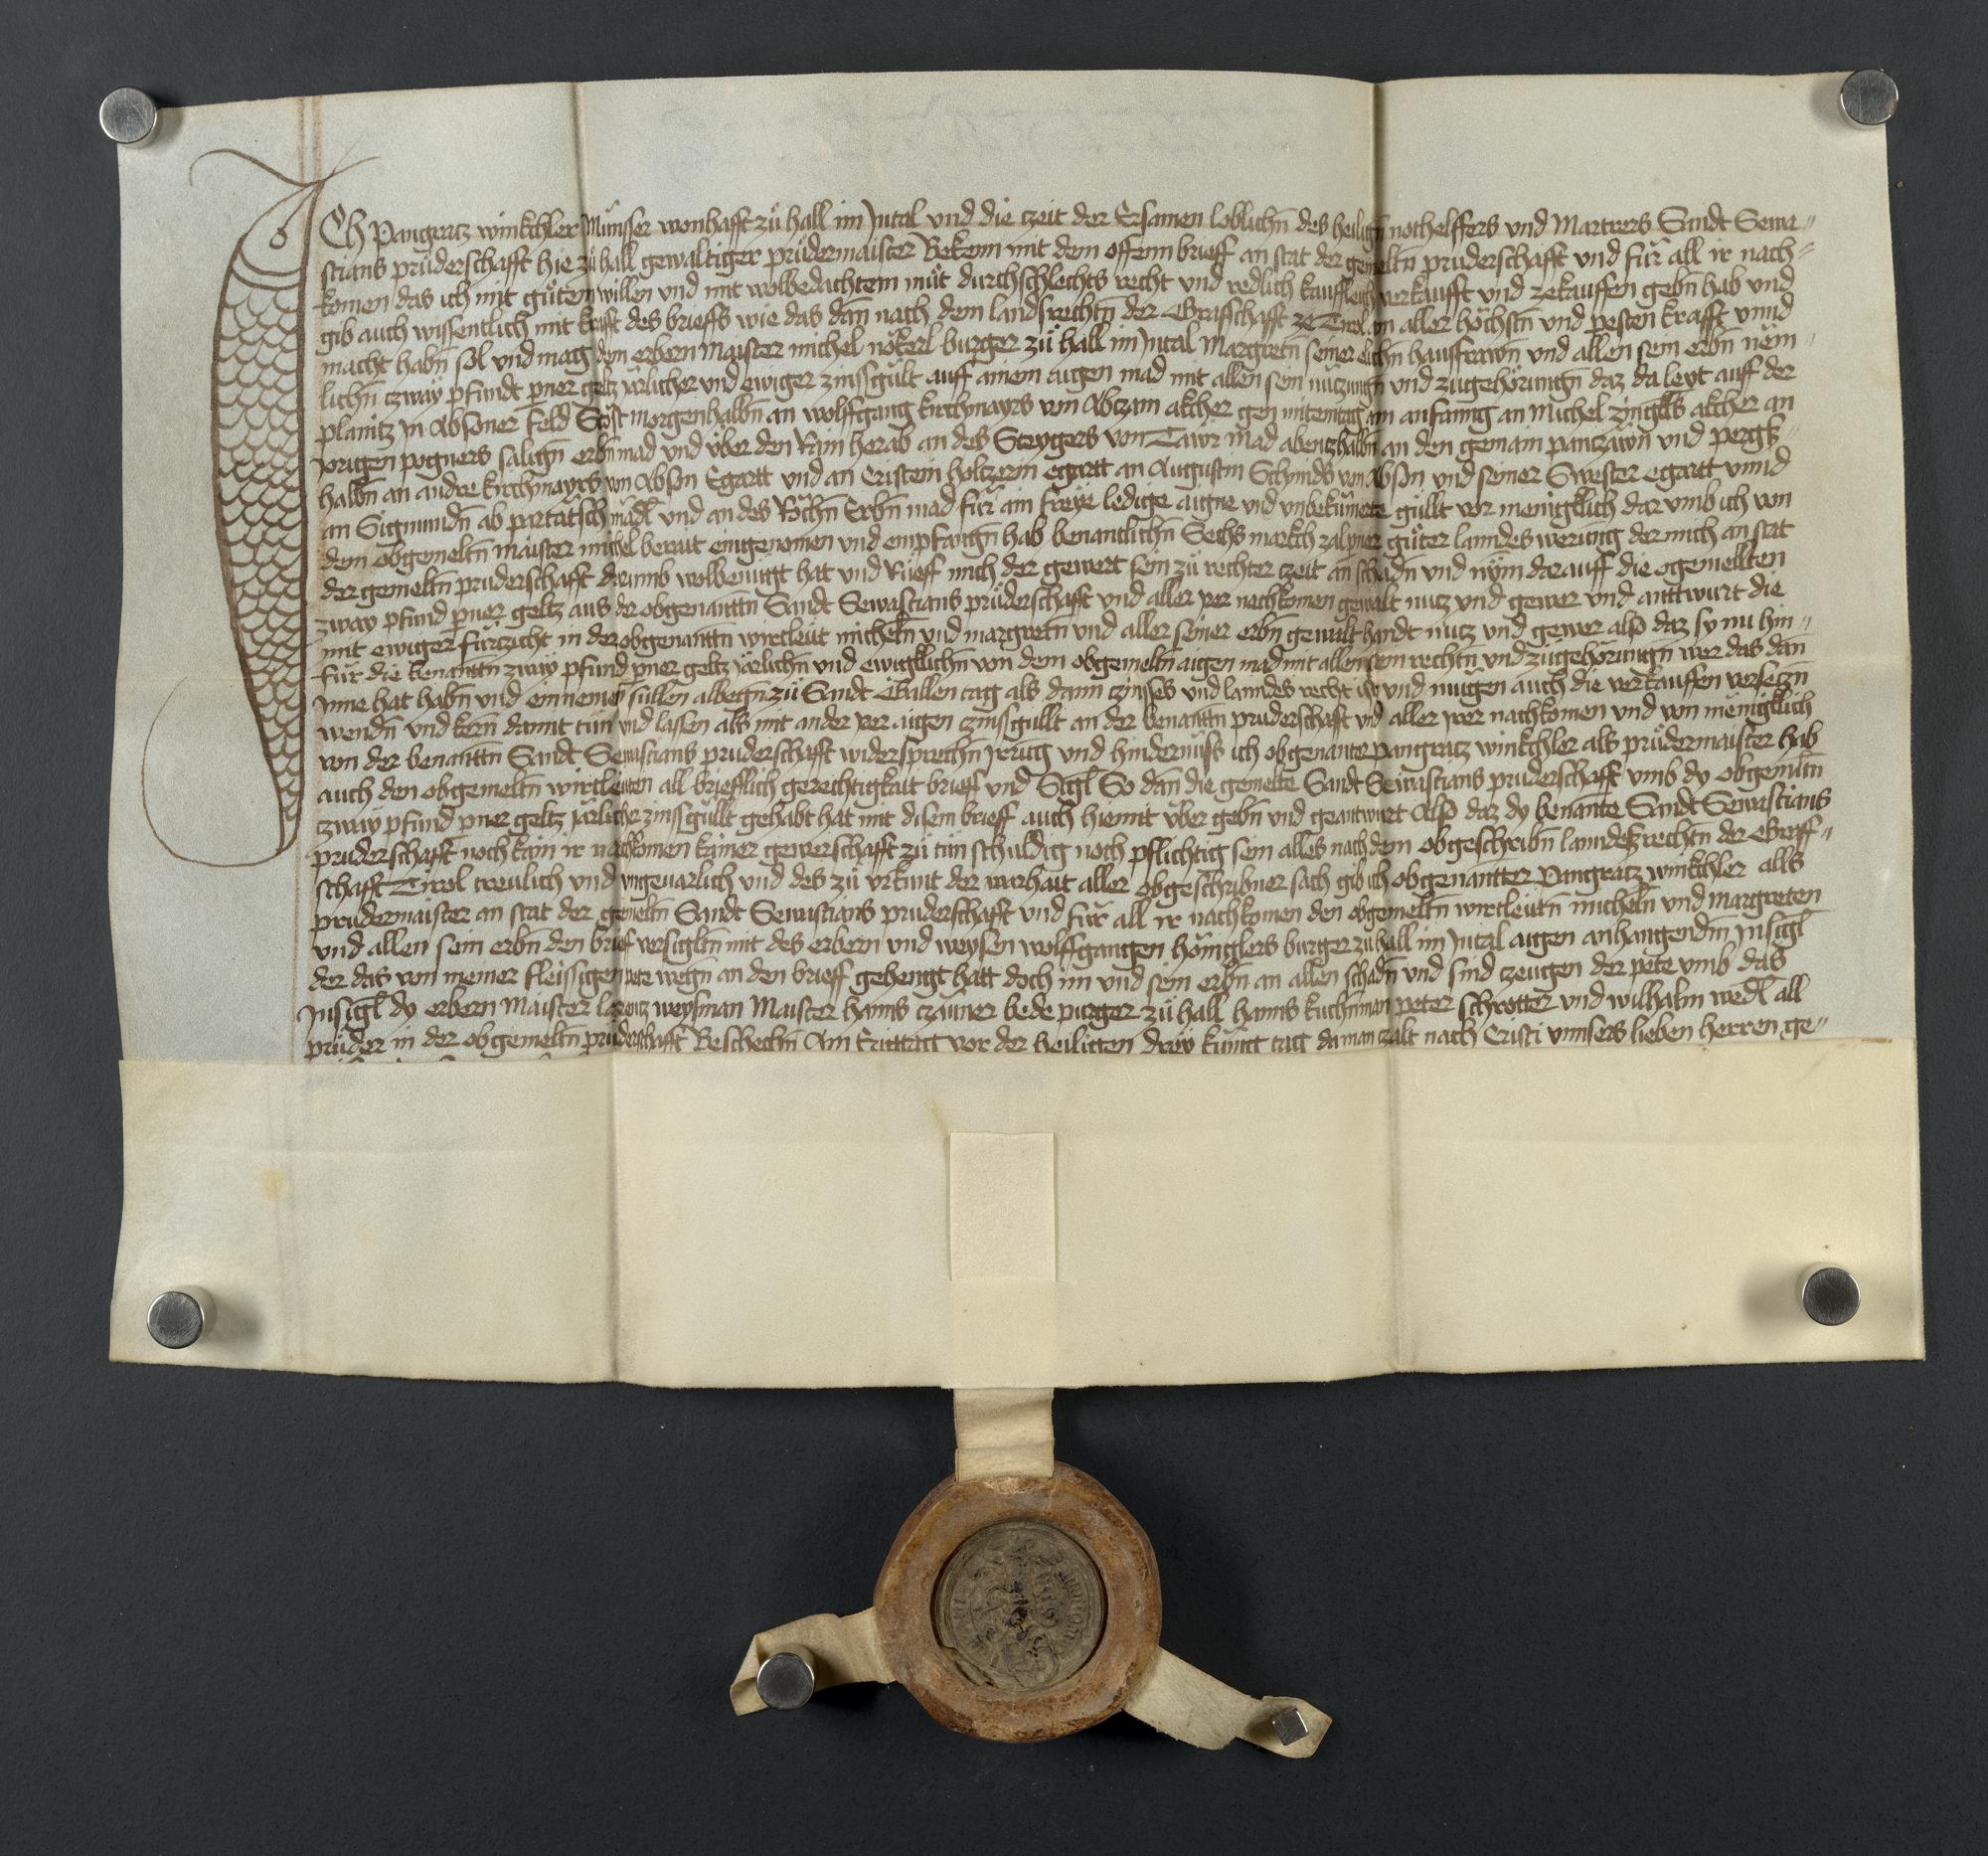 Ich Pangratz winkchler Münsser wonhafft zů hall im Intal und die czeit der Ersamen loblichn̄ des heilign̄ nothelffers und Martrers Sandt Sewa-
stians průderschafft hie zů hall gewaltiger průdermaister Bekenn mit dem offenn brieff an stat der gemeltn̄ pruderschafft und für all ir nach-
komen das ich mit gůten willen und mit wolbedachtem můt durchschlechts recht und redlich kaufflich verkaufft und zekauffen gebn̄ hab und
gib auch wissentlich mit krafft des brieffs wie das dan̄ nach dem landsrechtn̄ der Grafschafft ze Tirol am aller höchstn̄ und pesten krafft unnd
macht habn̄ sol und mag dem erbern Maister michel nökerl burger zů hall im Intal Margretn̄ seiner elichn̄ hausfrawn̄ und allen sein erbn̄ nëm-
lichn̄ czwaÿ pfundt pn̄er geltz järlicher und ewiger zinssgült auff ainem aigen mad mit allen sein nutzungn̄ und zugehörungn̄ daz da leyt auff der
planitz In Absoner Feld Stöst morgenhalbn̄ an wolffgang kirchmayrs von Abczam akcher gen mitemtag am anfanng an Michel zinglls akcher an
Jorigen pogners salign̄ erbn̄ mad und über den Rain herab an des Steygers von Tawr mad abentzhalbn̄ an den gemain panczawn̄ und pergk-
halbn̄ an andre kirchmayrs von Abson Egartt und an Cristein holtzerin egartt an Augustin Schmids von Abson und seiner Swester egartt unnd
an Sigmundn̄ ab partatsch mädl und an des Röchn̄ Erbn̄ mad für ain freÿe ledige aigne und unbekümerte güllt vor menigklich dar umb ich von
dem obgemeltn̄ maister michel berait eingenomen und empfangn̄ hab benantlichn̄ Sechs markch zalpner gůter lanndeswerung der mich an stat
der gemeltn̄ pruderschafft darumb wolbenügt hat und Rueff mich der gewert sein zů rechter czeit an schadn̄ und nÿm darauff die ogemellten
zway pfund pn̄er geltz aus der obgenanttn̄ Sandt Sewastians průderschafft und aller yer nachkomen gewalt nutz und gewer und anttwurt die
mit ewiger fürtzicht in der obgenanttn̄ wirtleut micheln̄ und margretn̄ und aller seiner erbn̄ gewalt handt nutz und gewer also daz sy nu hin-
für die benanttn̄ zwaÿ pfund pn̄er geltz järlichn̄ und ewigklichn̄ von dem obgemeltn̄ aigen mad mit allen sein rechtn̄ und zugehörungn̄ wer das dan̄
Inne hat habn̄ und einnemen süllen albegn̄ zů Sandt Gallen tag als dann czinsses und lanndes recht ist und mügen auch die verkauffen versetzn̄
wendn̄ und kern damit tun und lassen als mit ander yer aigen czinssgullt an der benanttn̄ pruderschafft und aller yer nachkomen und von menigklich
von der benanttn̄ Sandt Sewastians pruderschafft widersprechn̄ Jrung und hindernüss ich obgenanter Pangratz winkchler als průdermaister hab
auch den obgemeltn̄ wirtleuten all briefflich gerechtigkait brieff und Sigl So dan̄ die gemelte Sandt Sewastians pruderschafft umb dy obgemltn̄
czway pfund pn̄er geltz Järlicher zinssgüllt gehabt hat mit disem brieff auch hiemit über gebn̄ und geantwurt Also daz dy benante Sandt Sewastians
pruderschafft noch kain ir nachkomen kainer gewerschafft zů tün schuldig noch pflichtig sein alles nach dem obgeschribn̄ lanndesrechtn̄ der Graff-
schafft Tirol treulich und ungeuarlich und des zů urkunt der warhait aller obgeschribner sach gib ich obgenantter Pangratz winkchler alls
prudermaister an stat der gemeltn̄ Sandt Sewastians pruderschafft und für all ir nachkomen den obgemeltn̄ wirtleutn̄ micheln̄ und margreten
und allen sein erbn̄ den brief versigltn̄ mit des erbern und weysen wolffgangen höniglers burger zu hall im Intal aigen anhangendm̄ Insigl
der das von meiner fleissigen pete wegn̄ an den brieff gehengt hatt doch im und sein erbn̄ an allen schadn̄ und sind czeugen der pete umb das
Insigl dy erbern Maister lorentz weysman Maister hanns czauner bede purger zů hall hanns kuchnman peter schrotter und wilhalm wedl all
průder in der obgemeltn̄ průderschafft Beschechn̄ Am Erittag vor der heiligen dreÿ künig tag da man zalt nach Cristi unnsers lieben herren ge-